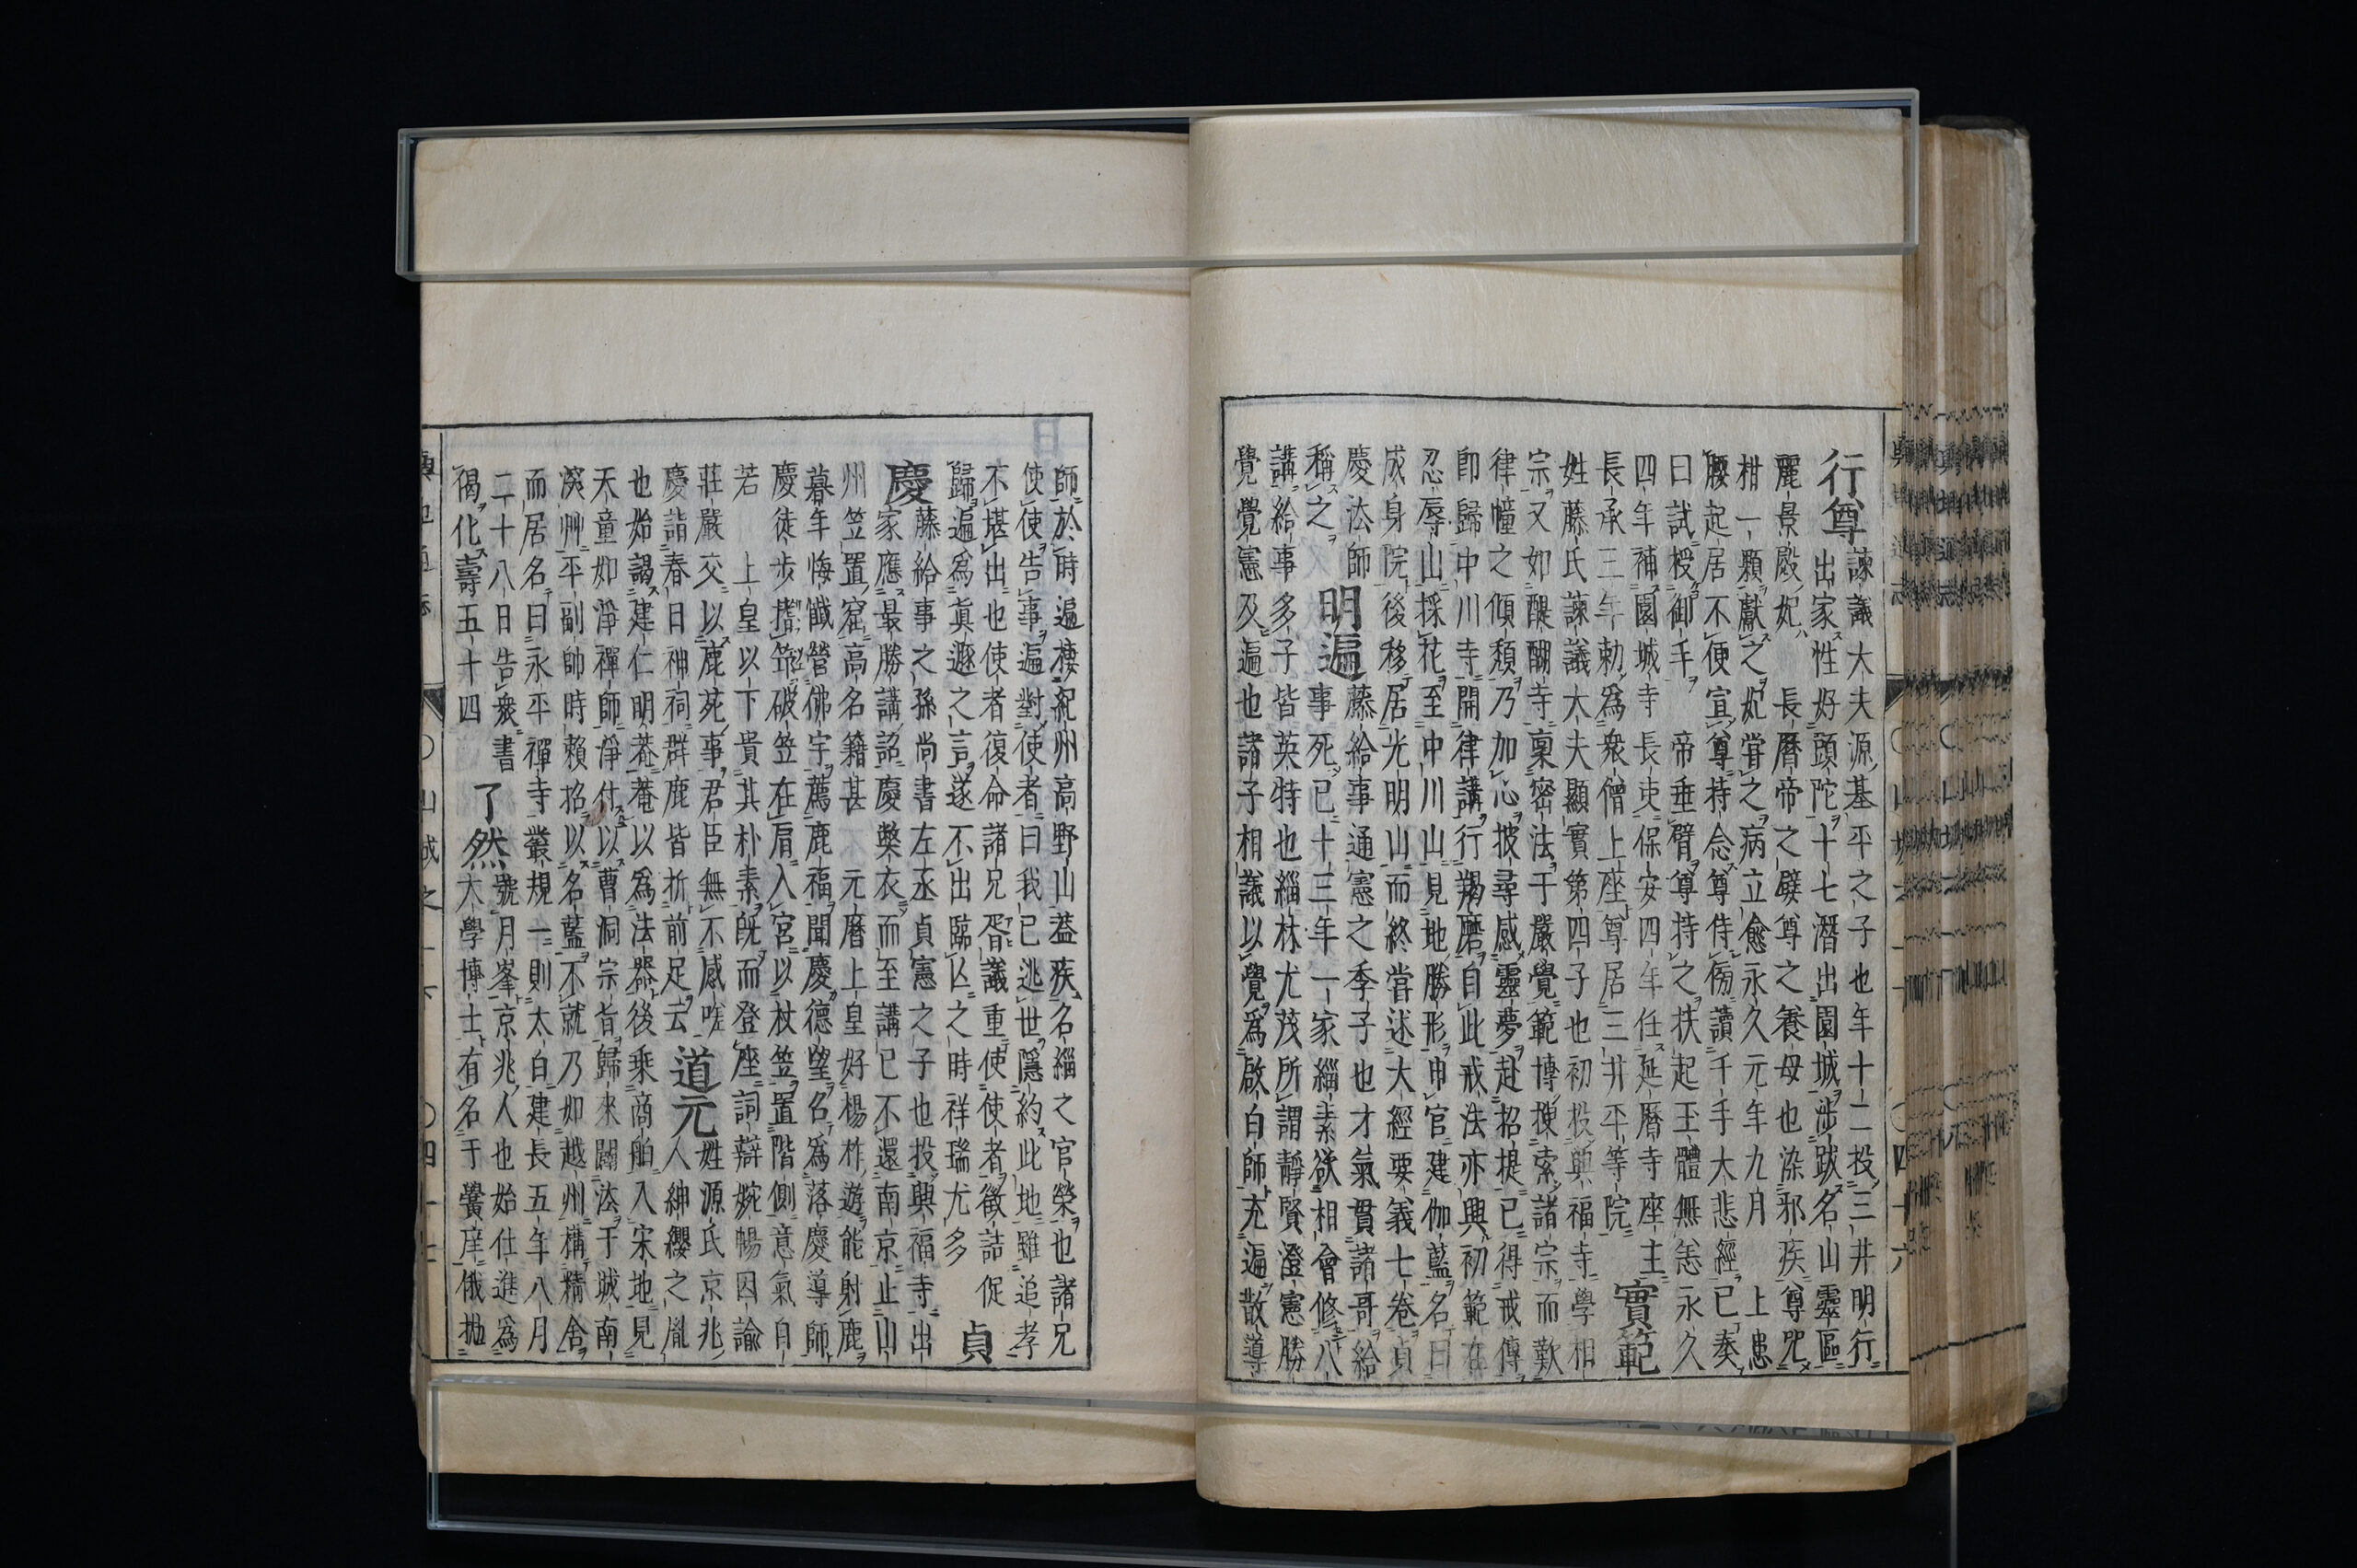 行尊諫議大夫源基平之子也年十二投三井明行
出家性好頭陀十七潛出園城涉跋名山靈區
麗景殿妃 長曆帝之嬖尊之養母也染邪疾尊咒
柑一顆獻之妃甞之病立愈永久元年九月 上患
腰起居不便宣尊持念尊侍傍讀千手大悲經已奏
曰試授御手 帝垂臂尊持之扶起玉體無恙永久
四年補園城寺長吏保安四年任延曆寺座主
長承三年勅爲衆僧上座尊居三井平等院 實範
姓藤氏諫議大夫顯實第四子也初投興福寺學相
宗又如醍醐寺稟密法于嚴覺範博揀索諸宗而歎
律幢之傾頽乃加心披尋感靈夢赴招提已得戒傳
卽歸中川寺開律講行羯磨自此戒法亦興初範在
忍辱山採花至中川山見地勝形申官建伽藍名曰
成身院後移居光明山而終甞述大經要義七卷貞
慶法師 明遍 藤給事通憲之季子也才氣貫諸哥給
稱之 事死已十三年一家緇素欲相會修八
講給事多子皆英特也緇林尤茂所謂靜賢澄憲勝
覺覺憲及遍也諸子相議以覺爲啟白師充遍散導
師於時遍棲紀州高野山葢疾名緇之官榮也諸兄
使使告事遍對使者曰我已逃世隱約此地雖追孝
不堪出也使者復命諸兄胥議重使使者徵詰促
歸遍爲眞遯之言遂不出臨亾之時祥瑞尤多 貞
慶 藤給事之孫尚書左丞貞憲之子也投興福寺出
家應最勝講詔慶弊衣而至講已不還南京止山
州笠置窟高名籍甚 元曆上皇好楊柞遊能射鹿
暮年悔懺營佛宇薦鹿福聞慶德望名爲落慶導師
慶徒步破笠在肩入宮以杖笠置階側意氣自
若 上皇以下貴其朴素旣而登座詞辯婉暢因諭
莊嚴交以鹿苑事君臣無不感嗟 道元 姓源氏京兆
慶詣春日神祠群鹿皆折前足云 人紳纓之胤
也始謁建仁明菴菴以爲法器後乘商舶入宋地見
天童如淨禪師淨付以曹洞宗旨歸來闢法于城南
深艸平副帥時賴招以名藍不就乃如越州構精舍
而居名曰永平禪寺叢規一則太白建長五年八月
二十八日告衆書 了然 號月峯京兆人也始仕進爲
偈化壽五十四 大學博士有名于黌庠俄抛